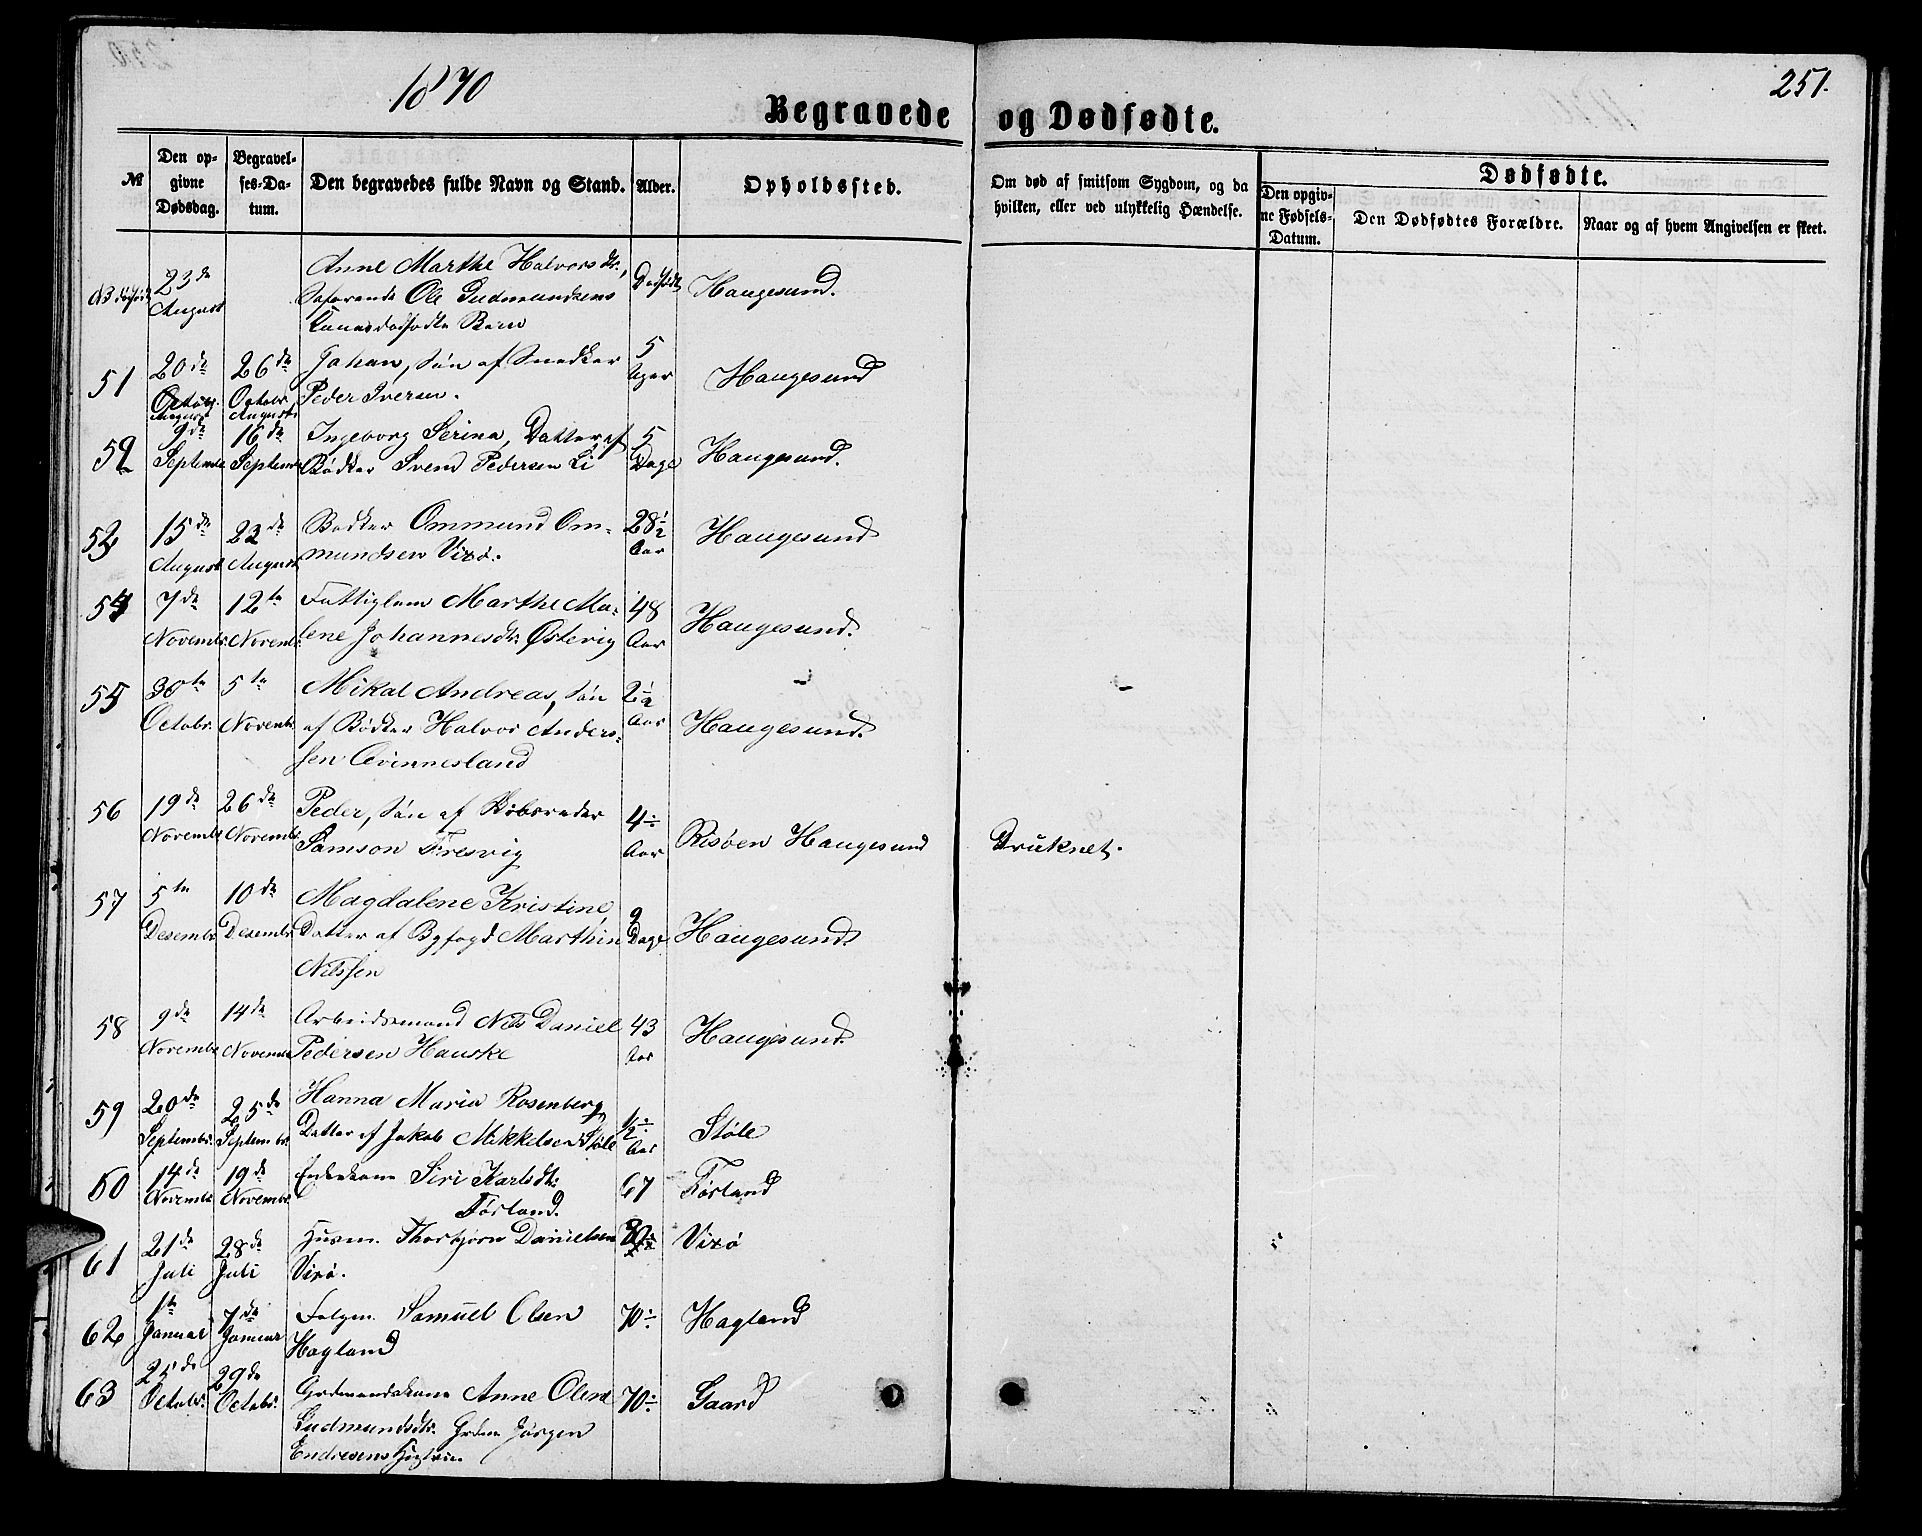 1870
251.
Begravede og Dødfødte.
№
Den op-
givne
Dødsdag.
Begravel-
ses-Da-
tum.
Den begravedes fulde Navn og Stand.
Alder.
Opholdssted.
Om død af smitsom Sygdom, og da
hvilken, eller ved ulykkelig Hændelse.
Dødfødte.
Den opgiv-
ne Fødsels-
Datum.
Den Dødfødtes Forældre.
Naar og af hvem Angivelsen er skeet.
23de
August
Anne Marthe Halvorsdtr,
Søfarende Ole Gudmundsens
Kones dødfødte Barn
Dødfødt
Haugesund.
51
20de
Octobr.
August
26de
Octobr.
August
Johan, Søn af Snedker
Peder Iversen.
5
Uger
Haugesund
52
9de
Septembr
16de
Septembr
Ingeborg Serina, Datter af
Bødker Svend Pedersen Li
5
Dage
Haugesund.
53
15de
August
23de
August
Bødker Ommund Om-
mundsen Vixø.
28½
Aar
Haugesund
54
7de
Novembr.
12te
Novembr.
Fattiglem Marthe Ma-
lene Johannesdtr Østevig
48
Aar
Haugesund.
55
30te
Octobr.
5te
Novembr
Mikal Andreas, Søn
af Bødker Halvor Anders-
sen Qvinnesland
2½
Aar
Haugesund.
56
19de
Novembr
26de
Novembr.
Peder, Søn af
Samson Fresvig
4
Aar
Risøen Haugesund
Druknet.
57
5te
Desembr
10de
Desembr
Magdalene Kristine,
Datter af Byfogd Marthin
Nilssen
9
Dage
Haugesund
58
9de
Novembr
14de
Novembr
Arbeidsmand Nils Daniel
Pedersen Hauske
43
Aar
Haugesund.
59
20de
Septembr.
25de
Septembr.
Hanna Maria Rosenberg
Datter af Jakob Mikkelsen Støle
½
Aar
Støle
60
14de
Novembr
19de
Novembr
Enkekone Siri Karlsdtr
Førland.
67
Førland
61
21de
Juli
28de
Juli
Husm. Thorbjørn Danielsen
Vixø.
Vixø
62
1te
Januar
7de
Januar
Folgm. Samuel Olsen
Hagland
70
Hagland
63
25de
Octobr.
29de
Octobr.
Grdmandskone Anne Olene
Gudmundsdtr. Grdm Jørgen
Endresens Hustru.
70
Gaard